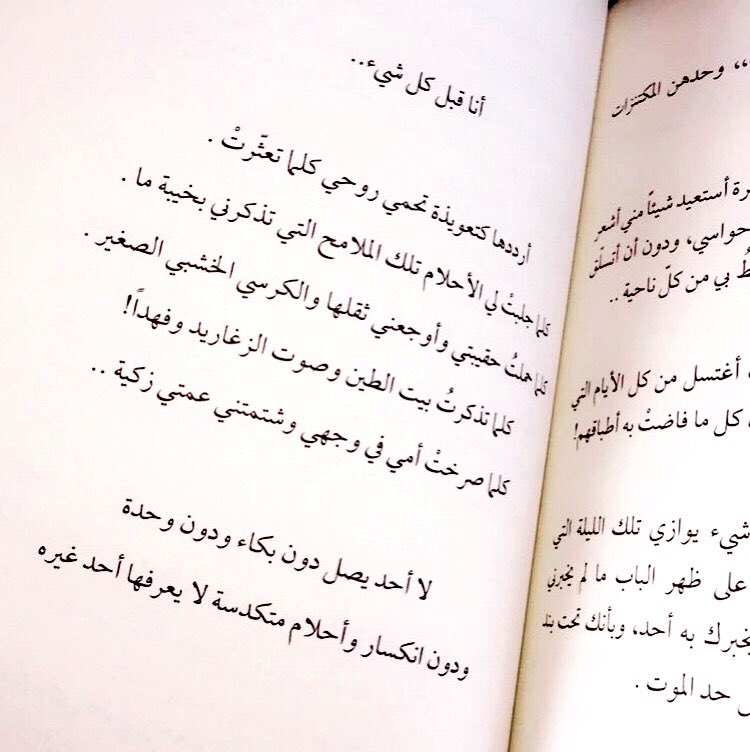 ،، وحدهن المكتنزات
أستعيد شيئاً مني أشعر
حواسي، ودون أن أتسلّق
بي من كلّ ناحية ..
أغتسل من كل الأيام التي
كل ما فاضتْ به أطباقهم!
شيء يوازي تلك الليلة التي
على ظهر الباب ما لم يخبرني
يخبرك به أحد، وبأنك تحت بند
حد الموت .
أنا قبل كل شيء..
أرددها كتعويذة تحمي روحي كلما تعثّرتْ .
كلما جلبتْ لي الأحلام تلك الملامح التي تذكرني بخيبة ما .
كلما حملتُ حقيبتي وأوجعني ثقلها والكرسي الخشبي الصغير .
كلما تذكرتُ بيت الطين وصوت الزغاريد وفهداً!
كلما صرختْ أمي في وجهي وشتمتني عمتي زكية ..
لا أحد يصل دون بكاء ودون وحدة
ودون انكسار وأحلام متكدسة لا يعرفها أحد غيره